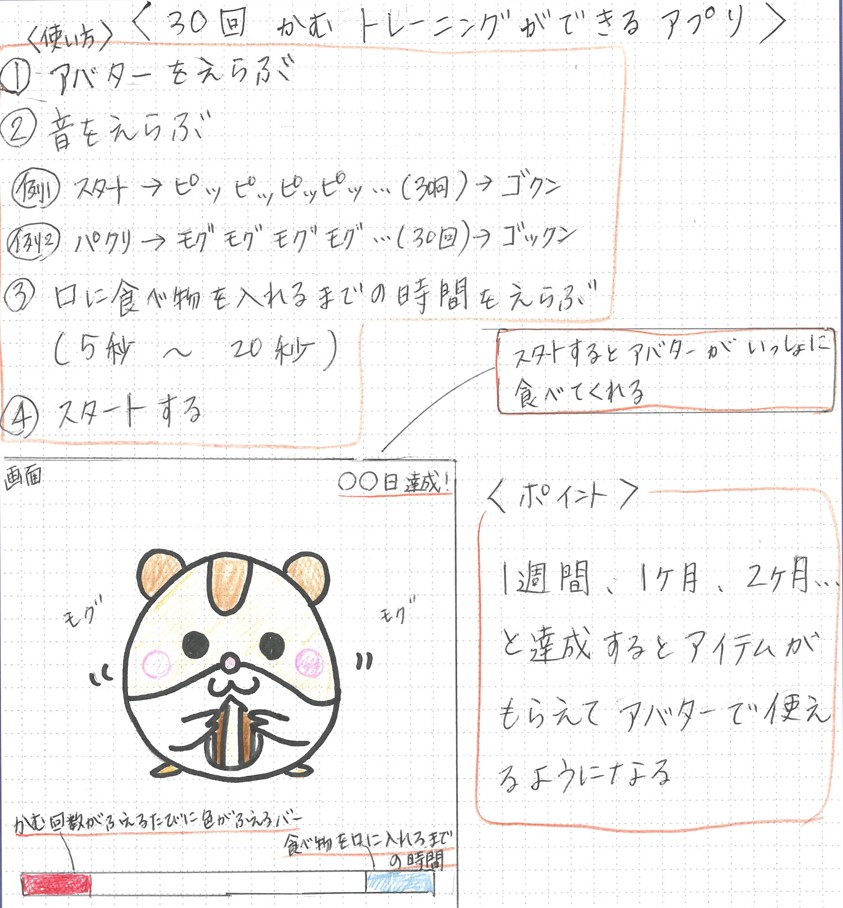 〈使い方〉 〈 30回 かむ トレーニングができる アプリ 〉
① アバターをえらぶ
② 音をえらぶ
例1 スタート → ピッ ピッ ピッ ピッ … (30回) → ゴクン
例2 パクリ → モグ モグ モグ モグ … (30回) → ゴックン
③ 口に食べ物を入れるまでの時間をえらぶ
(5秒 〜 20秒)
④ スタートする
スタートするとアバターがいっしょに
食べてくれる
画面
〇〇日達成!
モグ
モグ
かむ回数がふえるたびに色がふえるバー
食べ物を口に入れるまで
の時間
〈ポイント〉
1週間、1ケ月、2ケ月…
と達成するとアイテムが
もらえてアバターで使え
るようになる